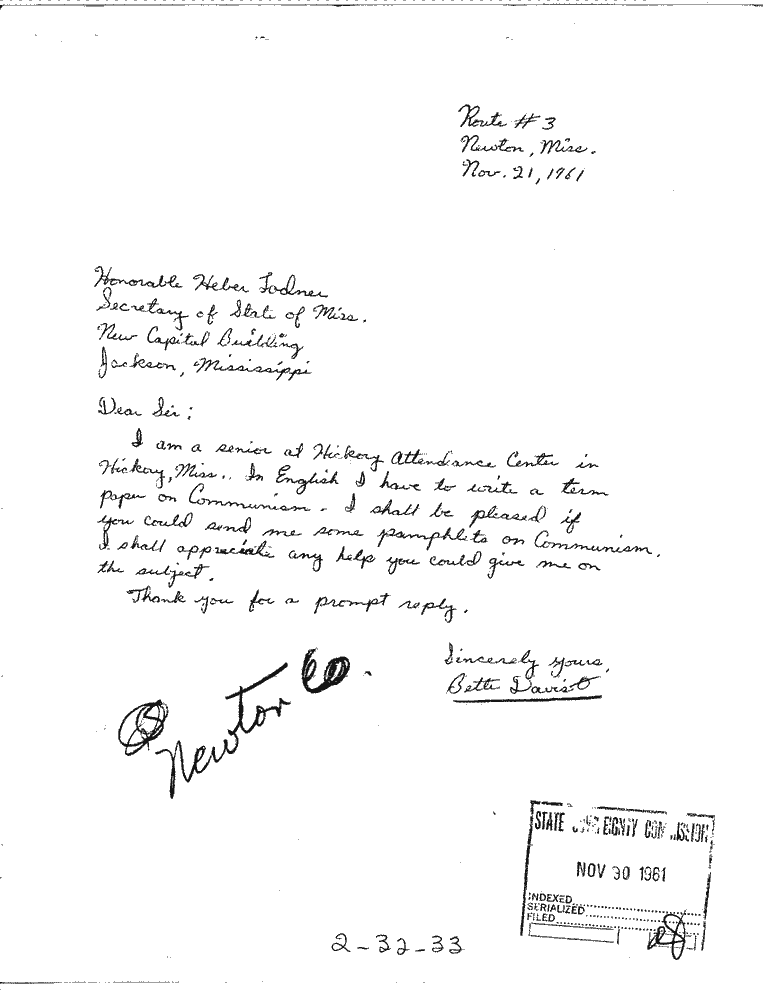 Route # 3
Newton, Miss.
Nov. 21, 1961
Honorable Heber Ladner
Secretary of State of Miss.
New Capitol Building
Jackson, Mississippi
Dear Sir:
I am a senior at Hickory Attendance Center in
Hickory, Miss.. In English I have to write a term
paper on Communism. I shall be pleased if
you could send me some pamphlets on Communism.
I shall appreciate any help you could give me on
the subject.
Thank you for a prompt reply.
Sincerely yours,
Bette Davis
Newton Co.
STATE SOVEREIGNTY COMMISSION
NOV 30 1961
INDEXED
SERIALIZED
FILED
2-32-33